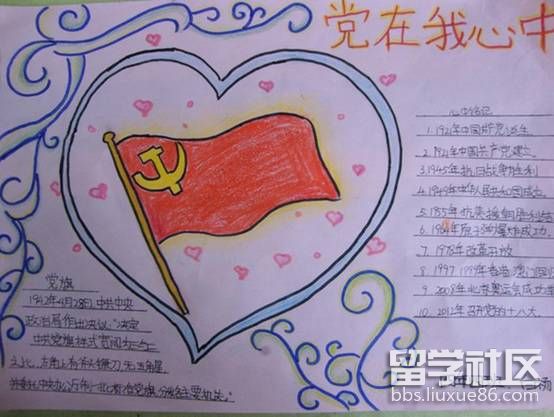 党在我心中
心中铭记
1. 1921年中国共产党诞生
2. 1921年中国共产党建立.
3. 1945年抗日战争胜利
4. 1949年中华人民共和国成立.
年抗美援朝胜利
6. 1964年原子弹爆炸成功.
7. 1978年改革开放
8. 1997 1999年香港 澳门回
9. 2008年北京奥运会成功
10. 2012年召开党的十八大.
党旗
1942年4月28日,中共中央
政治局作出决议:"决定
中共党旗样式宽阔为三与二
之比,左角上有斧头镰刀,无五角星,
并委托中央办公厅制一批标准党旗,分发各主要机关。"
留学社区
bbs.liuxue86.com